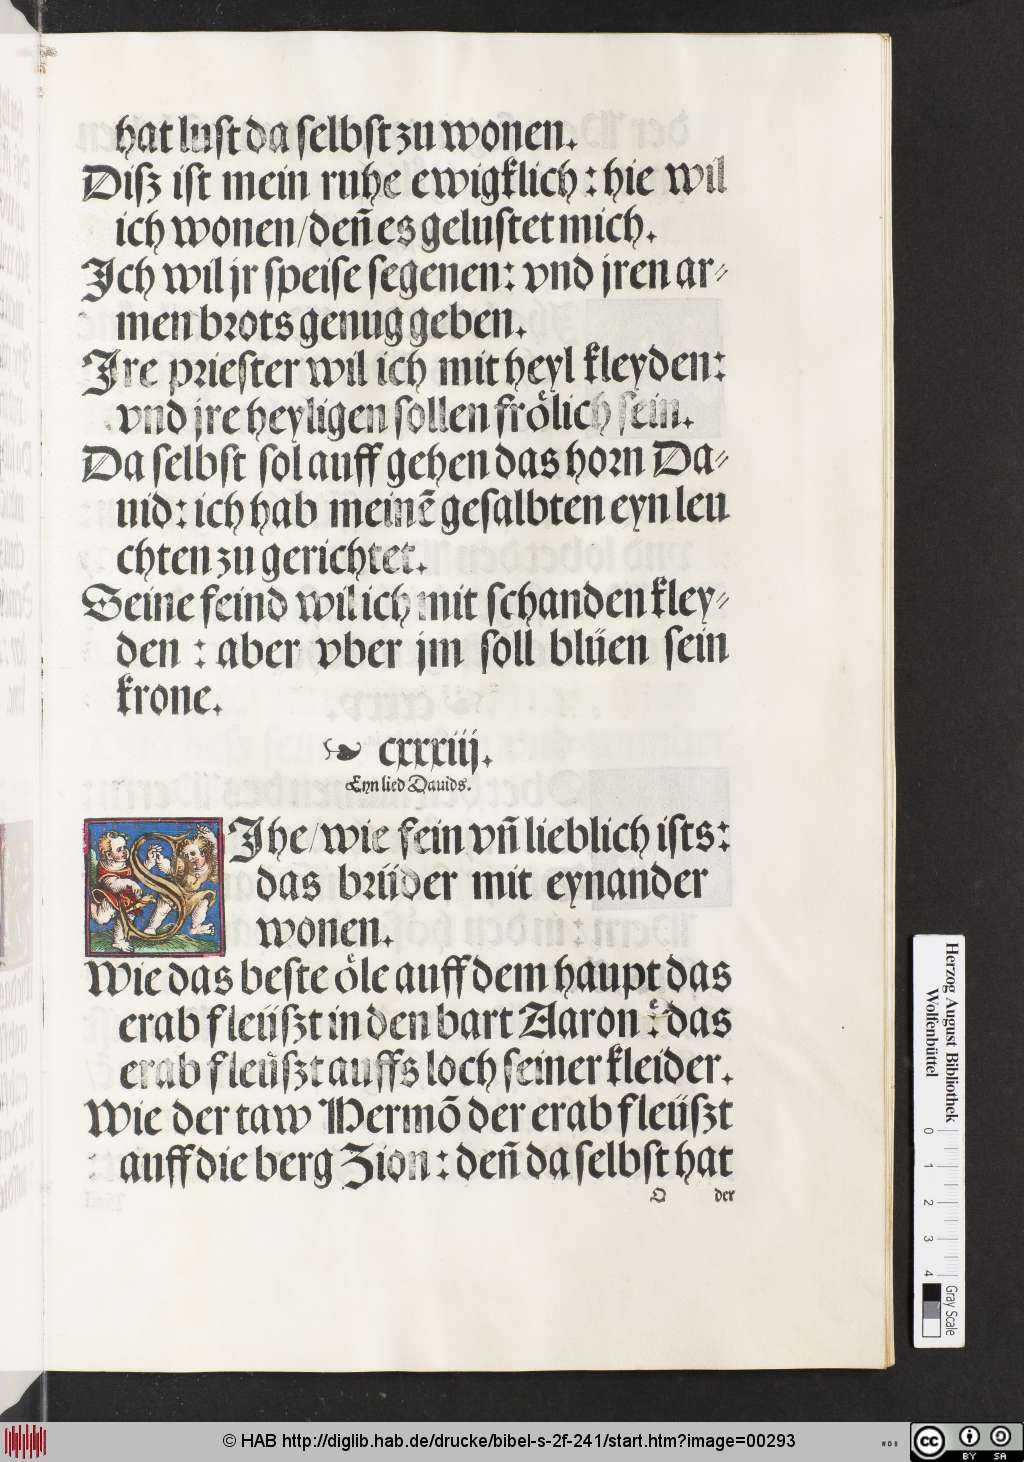 hat lust da selbst zu wonen.
Disz ist mein ruhe ewigklich: hie wil
ich wonen/deñ es gelustet mich.
Jch wil jr speise segenen: vnd jren ar⸗
men brots genug geben.
Jre priester wil ich mit heyl kleyden:
vnd jre heyligen sollen froͤlich sein.
Da selbst sol auff gehen das horn Da⸗
uid: ich hab meinẽ gesalbten eyn leu
chten zu gerichtet.
Seine feind wil ich mit schanden kley⸗
den : aber vber jm soll bluͤen sein
krone.
☙ cxxxiij.
Eyn lied Dauids.
SJhe/wie fein vñ lieblich ists:
das bruͤder mit eynander
wonen.
Wie das beste oͤle auff dem haupt das
erab fleuͤszt in den bart Aaron : das
erab fleuͤszt auffs loch seiner kleider.
Wie der taw Hermõ der erab fleuͤszt
auff die berg Zion : deñ da selbst hat
O der
Herzog August Bibliothek
Wolfenbüttel
0 1 2 3 4
Gray Scale
© HAB http://diglib.hab.de/drucke/bibel-s-2f-241/start.htm?image=00293
WDB
cc BY SA